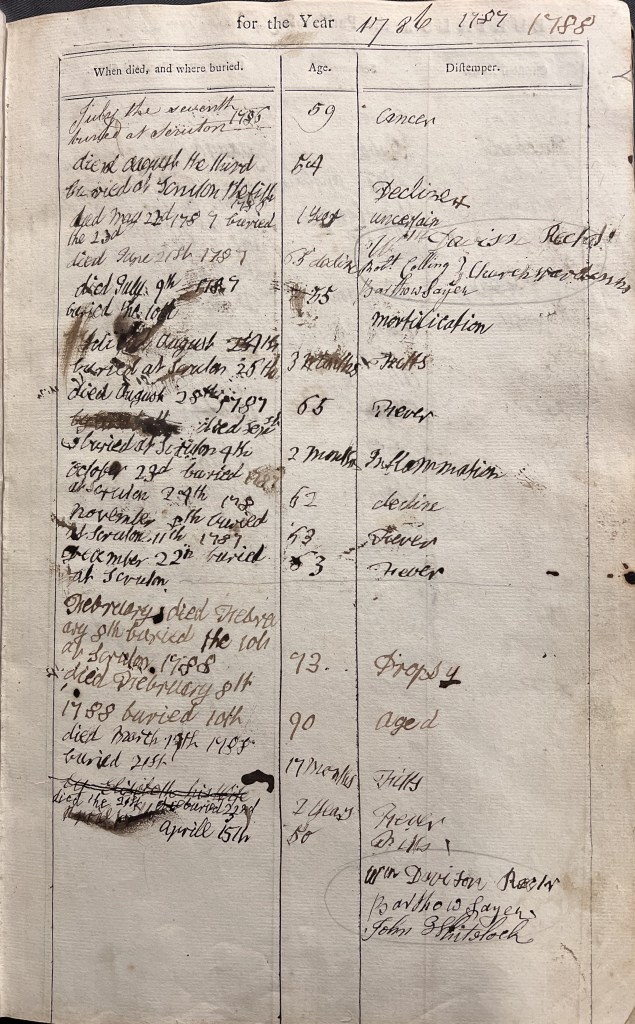 for the Year 1786 1787 1788
When died, and where buried. Age. Distemper.
July the seventh
buried at Scruton 1786 59 Cancer
died August the third 54
buried at Scruton the fifth Decline
died May 22d 1787 buried 1 Year uncertain
the 23d
died June 21st 1787 65 decline
Wm Davison Rector
Robt Colling } Churchwardens
Barthow Sayer
died July 9th 1787 55
buried the 10th mortification
died August
buried at Scruton 25th 3 months Fitts
died August 28th 1787 65 Fever
died Sept
buried at Scruton 4th 2 Months Inflammation
October 23d buried 1787
at Scruton 24th 62 decline
November 8th buried
at Scruton 11th 1787 53 Fever
December 22th buried 63 Fever
at Scruton
February died Febru
ary 8th buried the 10th
at Scruton 1788 93 Dropsy
died February 8th
1788 buried 10th 90 aged
died March 19th 1788
buried 21st 17 Months Fitts
by Elizibeth his wife
died the 20th buried 22nd 2 Years Fever
Aprill 15th 50 Fitts
Wm Davison Rectr
Barthow Sayer
John Whitelock